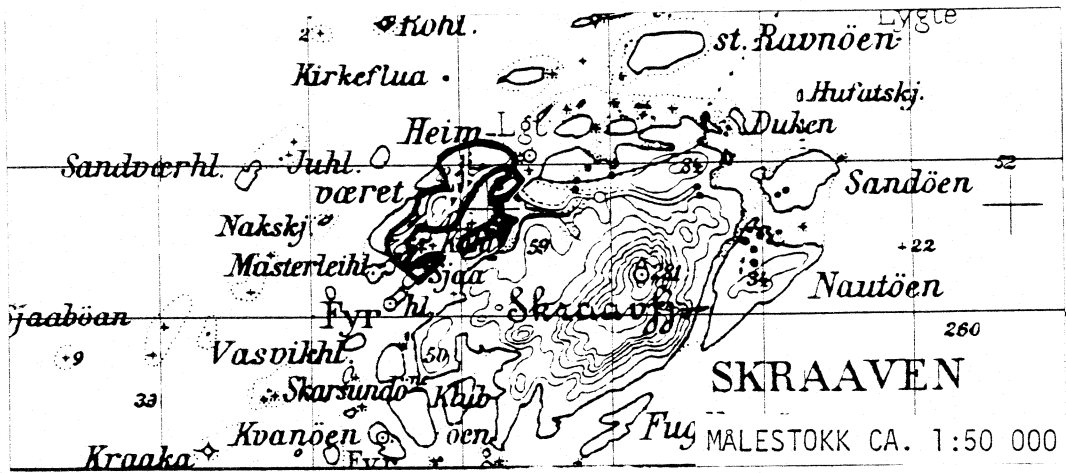 Lygte
2
Rohl.
st. Ravnöen
Kirkeflua
Hufatskj.
Heim-
Lgt
Duken
Sandværhl.
Juhl.
34
52
været
Sandöen
Nakskj
59
22
Mästerleihl.
Sjaa
281
34
Nautöen
Fyr
hl.
Skraavfj
260
9
Vasvikhl.
50
SKRAAVEN
33
Skarsundö
Klub
Kvanöen
öen
Fug
MÅLESTOKK CA. 1:50 000
Kraaka
Fyr